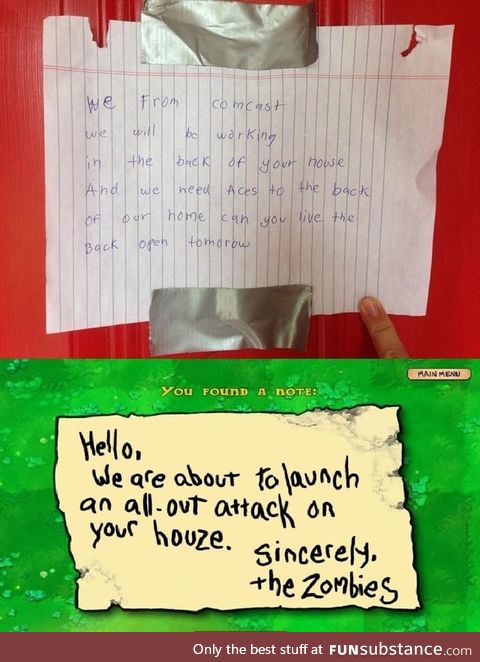 We From comcast
we will be working
in the back of your house
And we need Aces to the back
of our home can you live the
Back open tomorow
MAIN MENU
YOU FOUND A NOTE:
Hello,
We are about to launch
an all-out attack on
your houze.
Sincerely,
the Zombies
Only the best stuff at FUNsubstance.com